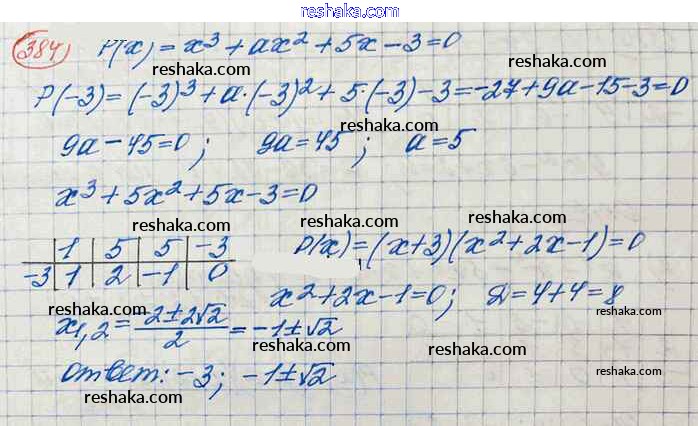 reshaka.com
384) P(x) = x³ + ax² + 5x - 3 = 0
reshaka.com reshaka.com
P(-3) = (-3)³ + a·(-3)² + 5·(-3) - 3 = -27 + 9a - 15 - 3 = 0
reshaka.com
9a - 45 = 0; 9a = 45; a = 5
reshaka.com reshaka.com
x³ + 5x² + 5x - 3 = 0
reshaka.com reshaka.com
| 1 | 5 | 5 | -3
-3 | 1 | 2 | -1 | 0
P(x) = (x+3)(x² + 2x - 1) = 0
reshaka.com
x² + 2x - 1 = 0; D = 4 + 4 = 8
x1,2 = 2 ± 2√2 / 2 = -1 ± √2
reshaka.com reshaka.com
ответ: -3; -1 ± √2
reshaka.com reshaka.com